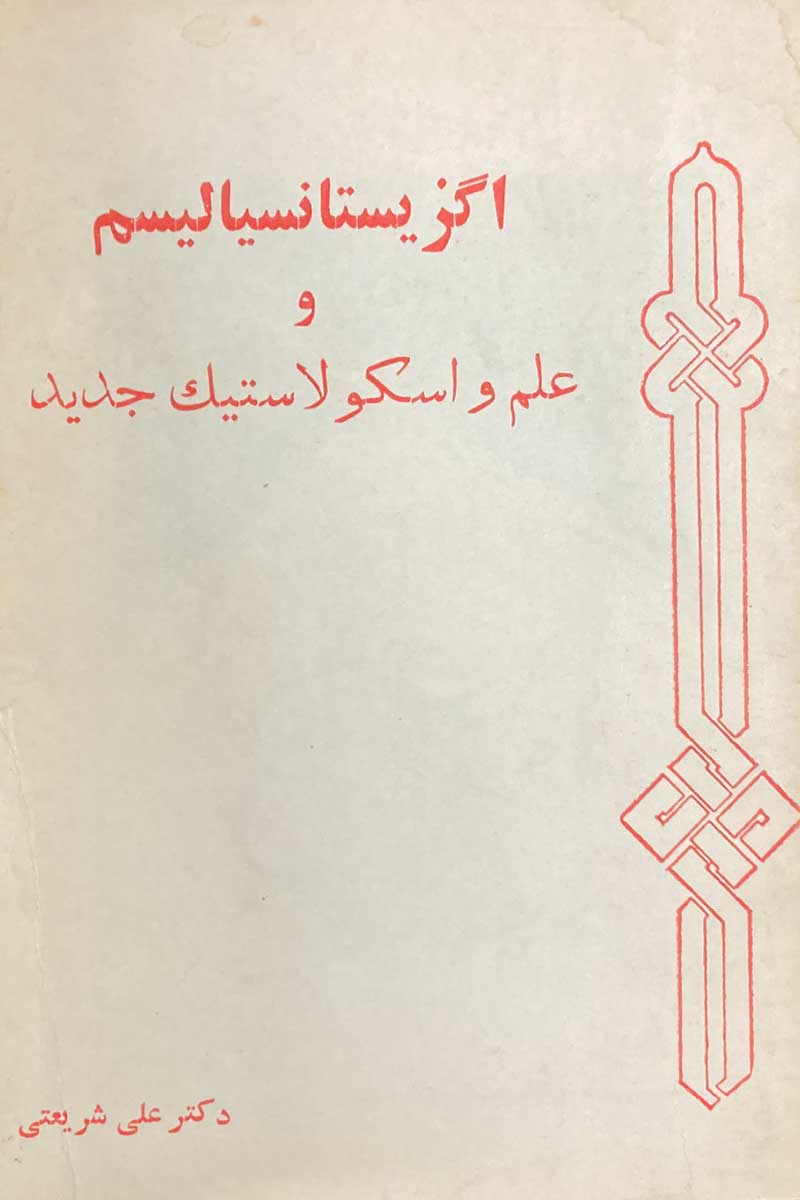 اگزیستانسیالیسم
و
علم و اسکولاستیك جدید
دکتر علی شریعتی